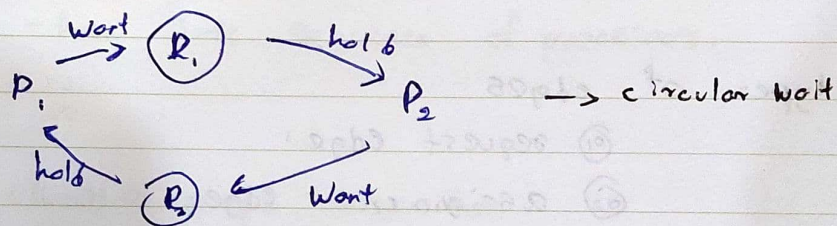 Want R₁ hold
P₁ P₂ → circular wait
hold R₂ Want